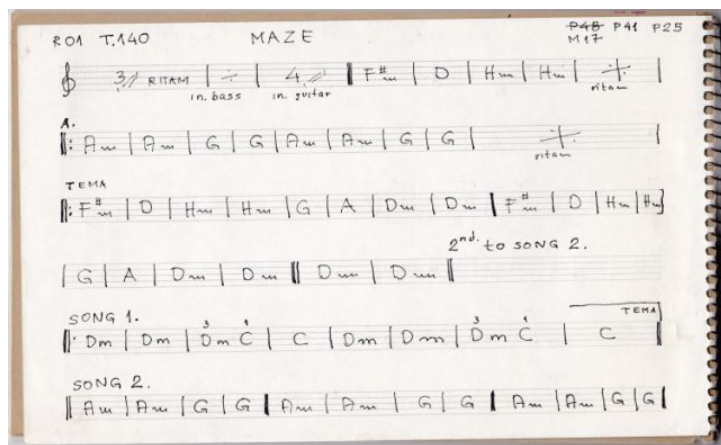 R01 T.140 MAZE P48 P41 P25
M17
3 RITAM | ÷ | 4 || F#m | D | Hm | Hm | ٪ |
in. bass in. guitar ritam
A.
||: Am | Am | G | G | Am | Am | G | G | ٪ |
ritam
TEMA
||: F#m | D | Hm | Hm | G | A | Dm | Dm | F#m | D | Hm | Hm |
2nd. to SONG 2.
| G | A | Dm | Dm || Dm | Dm ||
SONG 1.
3 1 3 1 TEMA
||: Dm | Dm | Dm C | C | Dm | Dm | Dm C | C ||
SONG 2.
|| Am | Am | G | G | Am | Am | G | G | Am | Am | G | G |